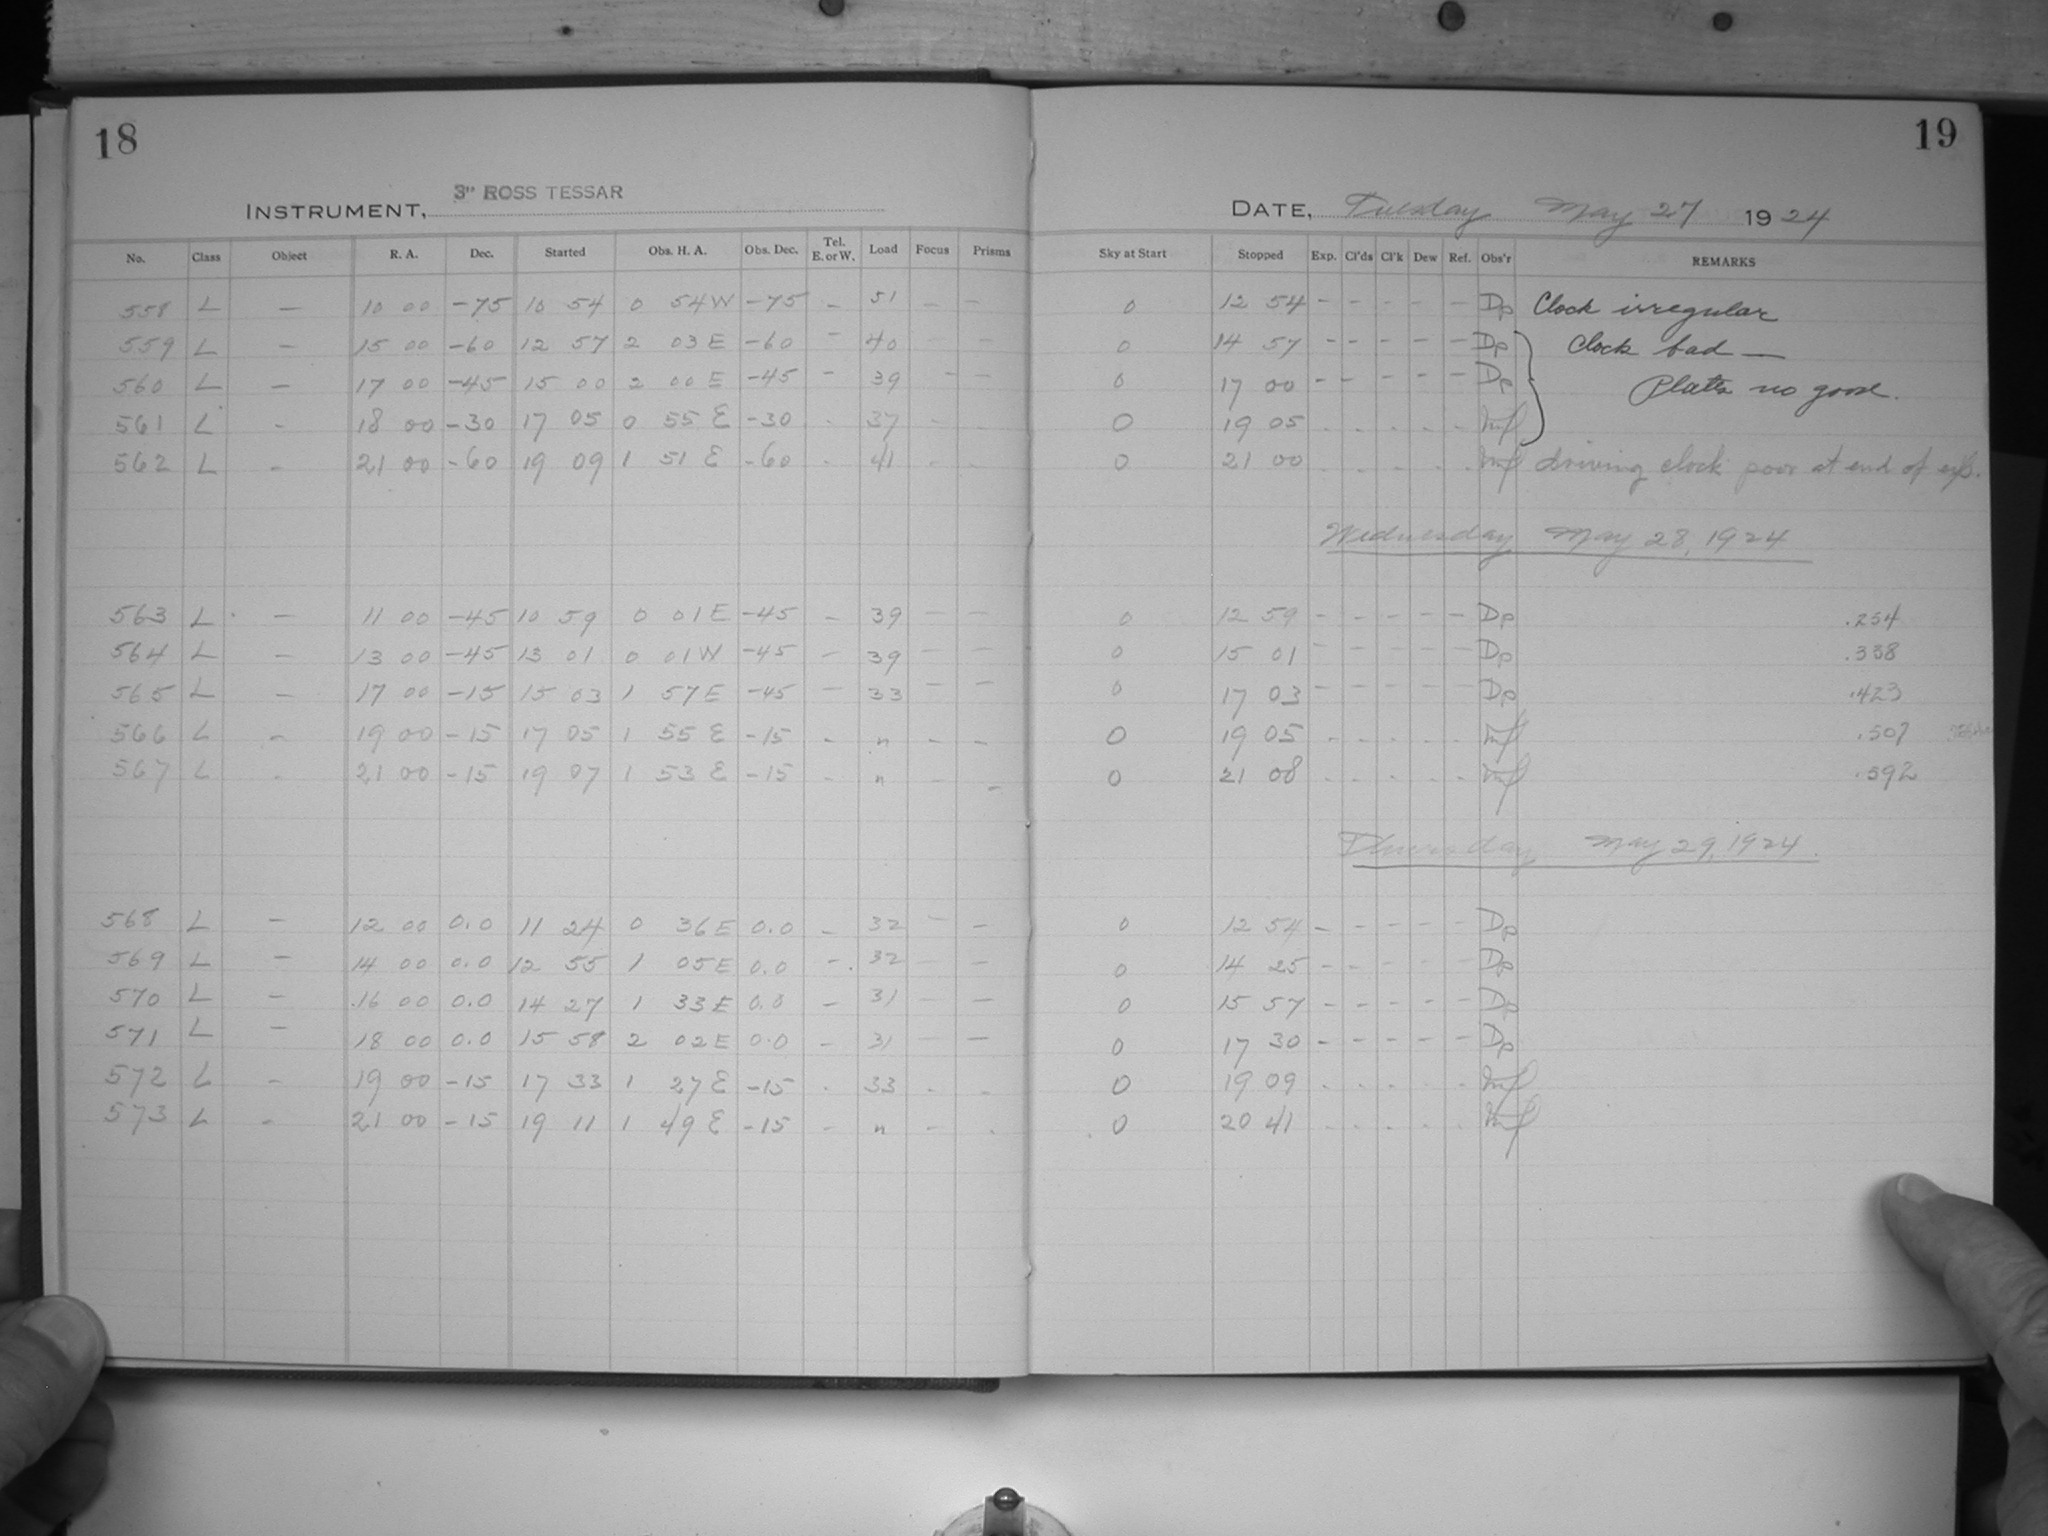 18
19
3" ROSS TESSAR
INSTRUMENT,
DATE, Tuesday May 27 1924
No. Class Object R. A. Dec. Started Obs. H. A. Obs. Dec. Tel. E. or W. Load Focus Prisms Sky at Start Stopped Exp. Cl'ds Cl'k Dew Ref. Obs'r REMARKS
558 L — 10 00 -75 10 54 0 54 W -75 - 51 - - 0 12 54 - - - - - Dp Clock irregular
559 L — 15 00 -60 12 57 2 03 E -60 - 40 - - 0 14 57 - - - - - Dp Clock bad —
560 L — 17 00 -45 15 00 2 00 E -45 - 39 - - 0 17 00 - - - - - Dp Plates no good.
561 L - 18 00 -30 17 05 0 55 E -30 - 37 - - 0 19 05 - - - - -
562 L - 21 00 -60 19 09 1 51 E -60 - 41 - - 0 21 00 - - - - - driving clock poor at end of exp.
Wednesday May 28, 1924
563 L - 11 00 -45 10 59 0 01 E -45 - 39 - - 0 12 59 - - - - - Dp .254
564 L - 13 00 -45 13 01 0 01 W -45 - 39 - - 0 15 01 - - - - - Dp .338
565 L - 17 00 -15 15 03 1 57 E -45 - 33 - - 0 17 03 - - - - - Dp .423
566 L - 19 00 -15 17 05 1 55 E -15 - " - - 0 19 05 - - - - - .507
567 L - 21 00 -15 19 07 1 53 E -15 - " - - 0 21 08 - - - - - .592
Thursday May 29, 1924.
568 L - 12 00 0.0 11 24 0 36 E 0.0 - 32 - - 0 12 54 - - - - - Dp
569 L - 14 00 0.0 12 55 1 05 E 0.0 - 32 - - 0 14 25 - - - - - Dp
570 L - 16 00 0.0 14 27 1 33 E 0.0 - 31 - - 0 15 57 - - - - - Dp
571 L - 18 00 0.0 15 58 2 02 E 0.0 - 31 - - 0 17 30 - - - - - Dp
572 L - 19 00 -15 17 33 1 27 E -15 - 33 - - 0 19 09 - - - - -
573 L - 21 00 -15 19 11 1 49 E -15 - " - - 0 20 41 - - - - -